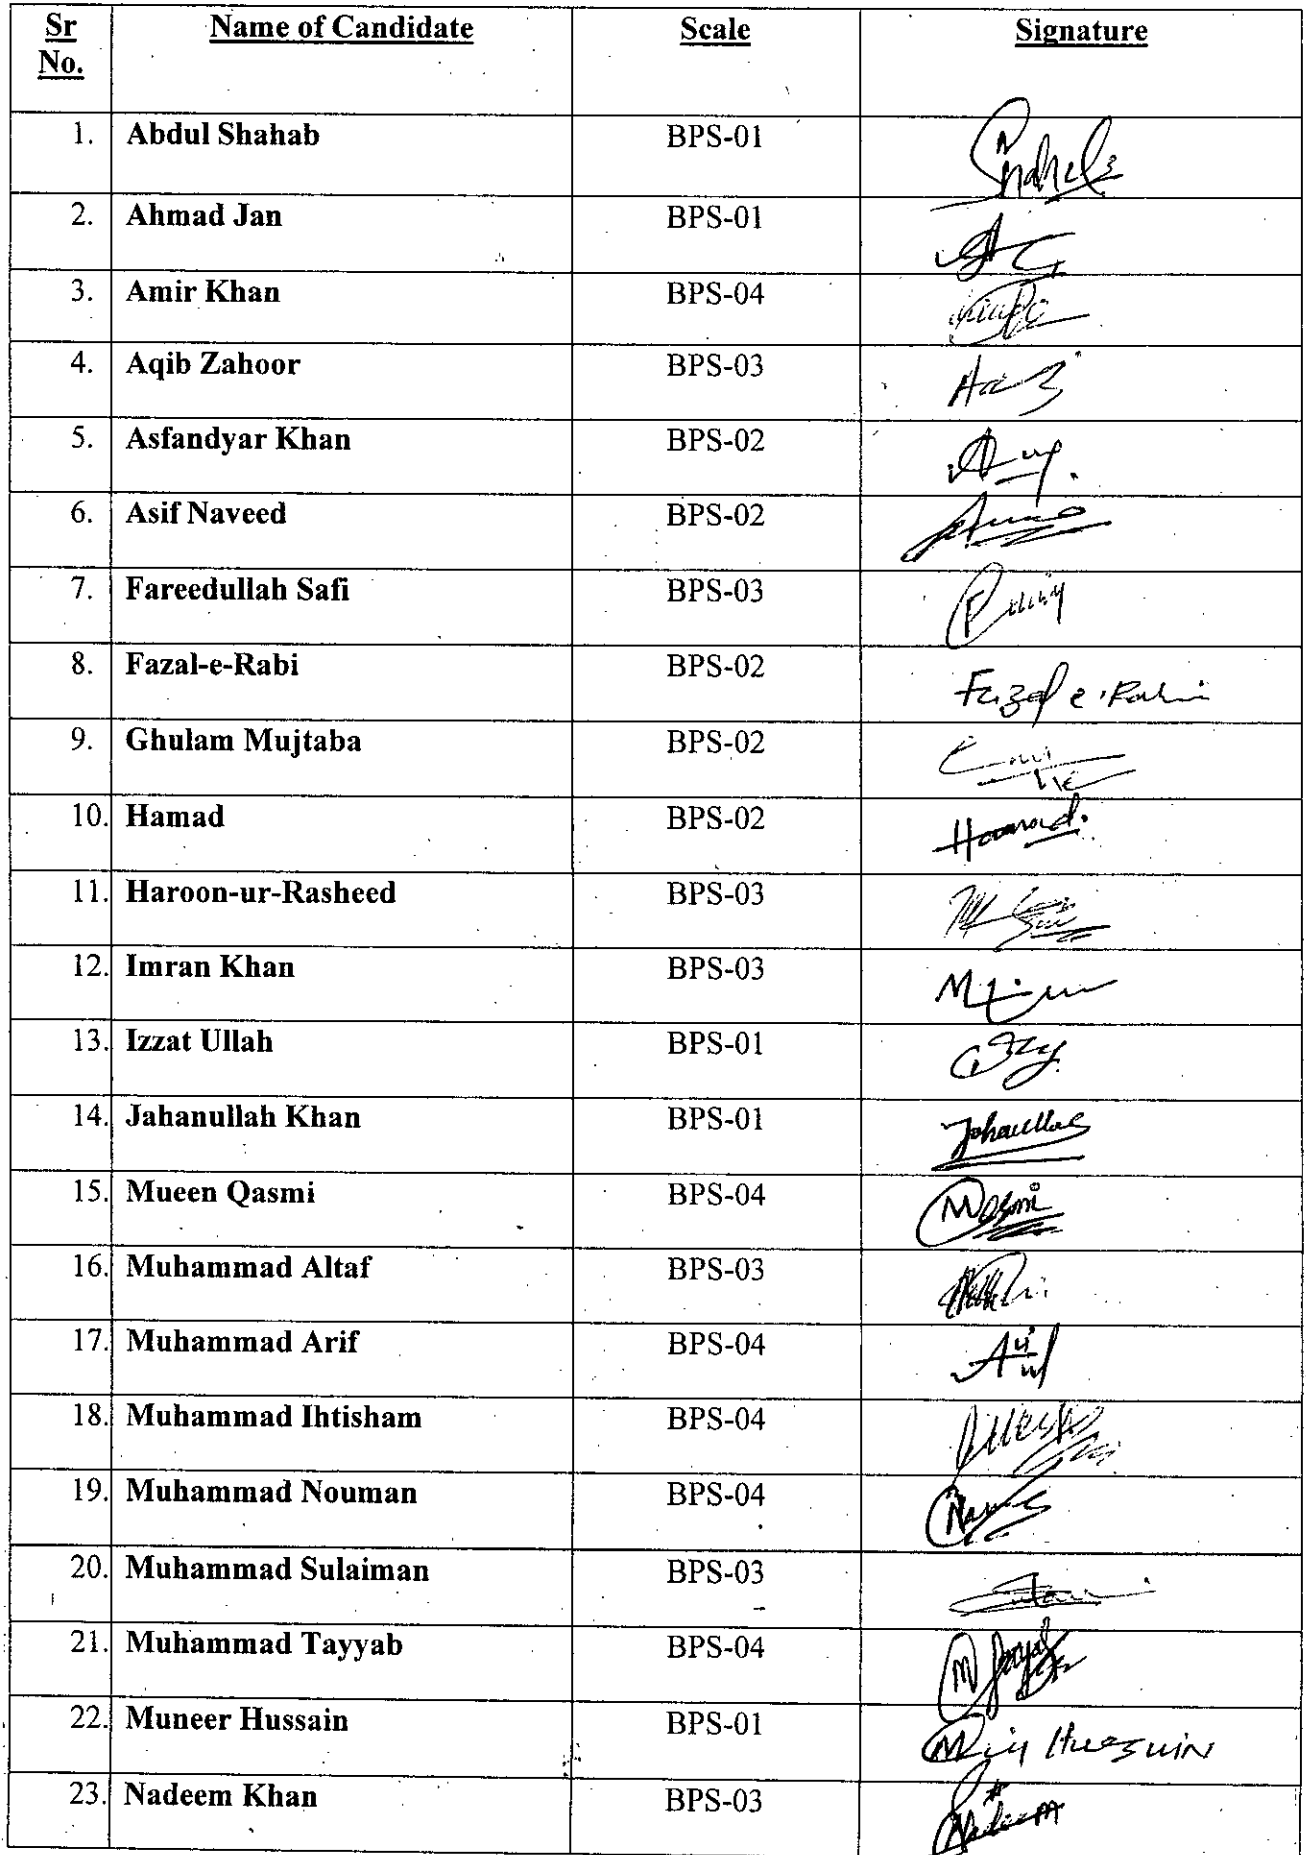 Sr No. Name of Candidate Scale Signature
1. Abdul Shahab BPS-01
2. Ahmad Jan BPS-01
3. Amir Khan BPS-04
4. Aqib Zahoor BPS-03
5. Asfandyar Khan BPS-02
6. Asif Naveed BPS-02
7. Fareedullah Safi BPS-03
8. Fazal-e-Rabi BPS-02 Fazal e Rabi
9. Ghulam Mujtaba BPS-02
10. Hamad BPS-02 Hammad.
11. Haroon-ur-Rasheed BPS-03
12. Imran Khan BPS-03
13. Izzat Ullah BPS-01
14. Jahanullah Khan BPS-01
15. Mueen Qasmi BPS-04
16. Muhammad Altaf BPS-03
17. Muhammad Arif BPS-04
18. Muhammad Ihtisham BPS-04
19. Muhammad Nouman BPS-04
20. Muhammad Sulaiman BPS-03
21. Muhammad Tayyab BPS-04
22. Muneer Hussain BPS-01 Hussain
23. Nadeem Khan BPS-03 Nadeem